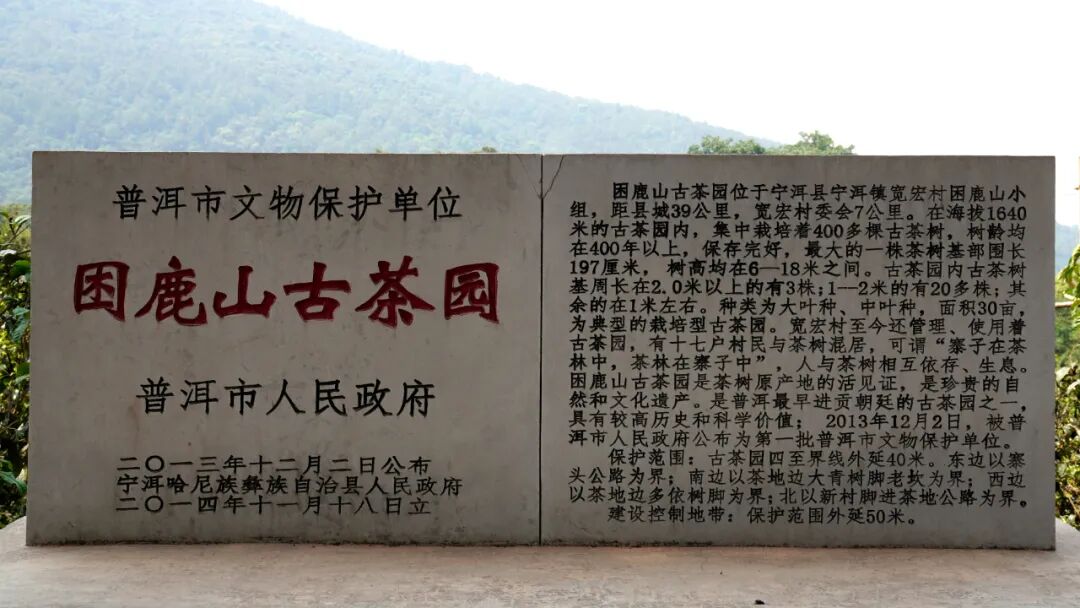 普洱市文物保护单位
困鹿山古茶园
普洱市人民政府
二〇一三年十二月二日公布
宁洱哈尼族彝族自治县人民政府
二〇一四年十一月十八日立
困鹿山古茶园位于宁洱县宁洱镇宽宏村困鹿山小
组，距县城39公里，宽宏村委会7公里。在海拔1640
米的古茶园内，集中栽培着400多棵古茶树，树龄均
在400年以上，保存完好，最大的一株茶树基部围长
197厘米，树高均在6—18米之间。古茶园内古茶树
基周长在2.0米以上的有3株；1--2米的有20多株；其
余的在1米左右。种类为大叶种、中叶种，面积30亩，
为典型的栽培型古茶园。宽宏村至今还管理、使用着
古茶园，有十七户村民与茶树混居，可谓“寨子在茶
林中，茶林在寨子中”，人与茶树相互依存、生息。
困鹿山古茶园是茶树原产地的活见证，是珍贵的自
然和文化遗产。是普洱最早进贡朝廷的古茶园之一，
具有较高历史和科学价值；2013年12月2日，被普
洱市人民政府公布为第一批普洱市文物保护单位。
保护范围：古茶园四至界线外延40米。东边以寨
头公路为界；南边以茶地边大青树脚老坎为界；西边
以茶地边多依树脚为界；北以新村脚进茶地公路为界。
建设控制地带：保护范围外延50米。